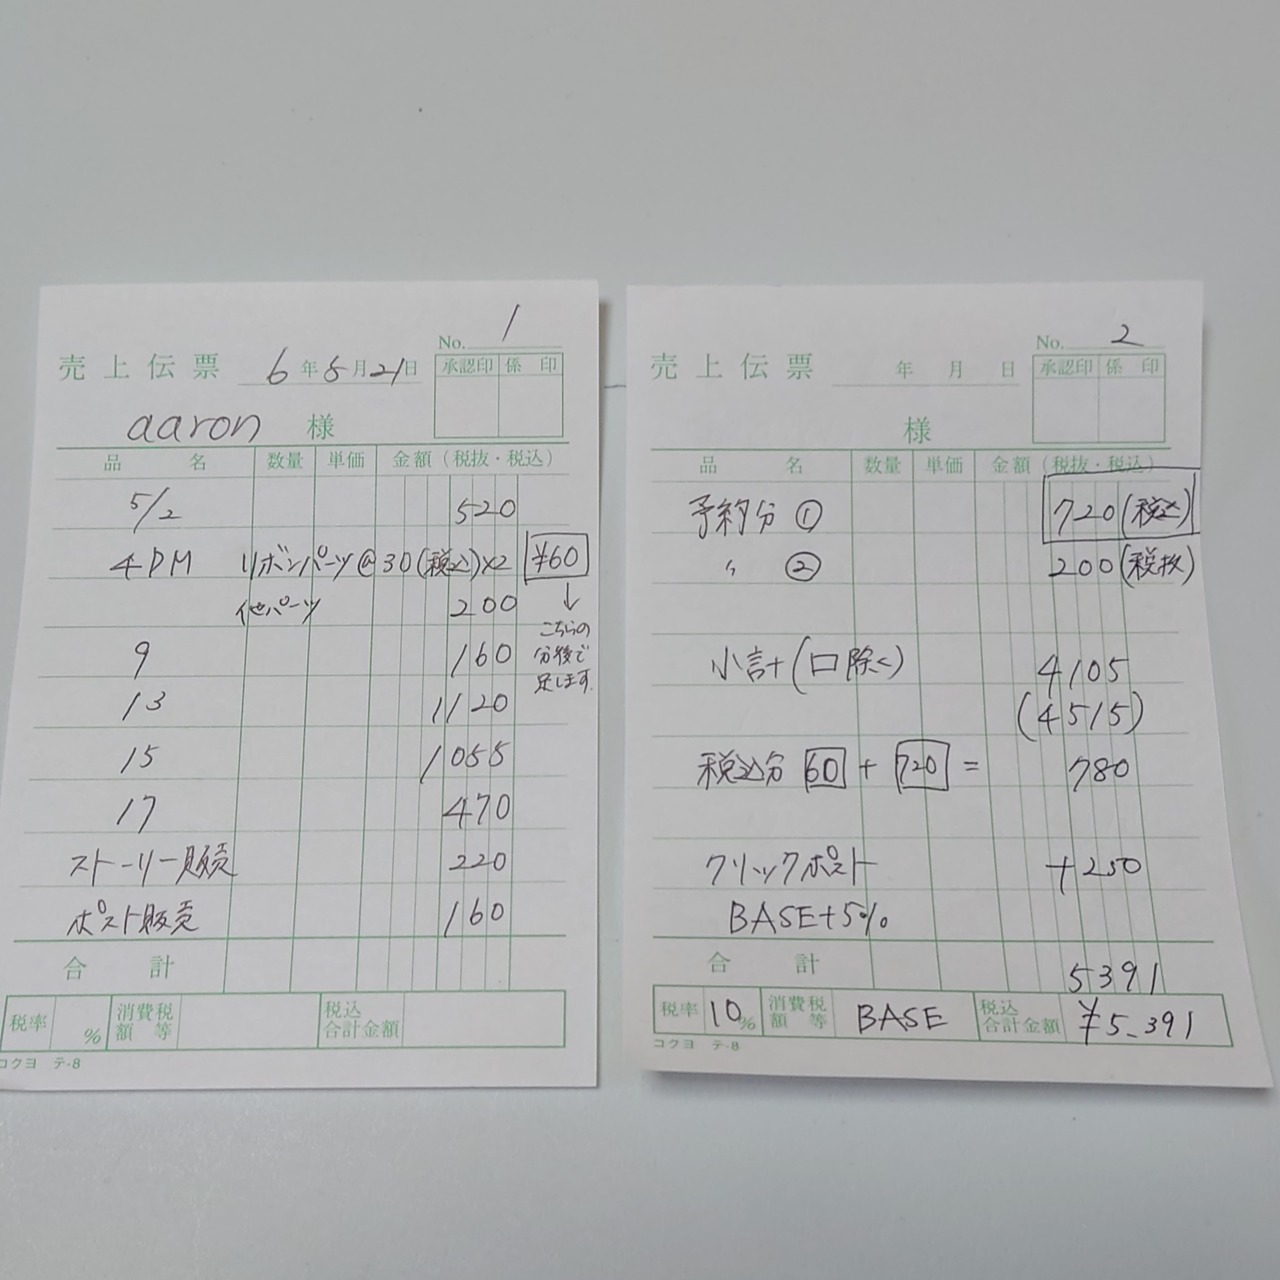 No. 1
売上伝票 6年8月21日 承認印 係印
aaron 様
品名 数量 単価 金額(税抜・税込)
5/2 520
4PM リボンパーツ@30(税込)×2 ¥60
他パーツ 200
↓
こちらの
分後で
足します
9 160
13 1120
15 1055
17 470
ストーリー販売 220
ポスト販売 160
合計
税率 % 消費税額等 税込合計金額
コクヨ テ-8
No. 2
売上伝票 年 月 日 承認印 係印
様
品名 数量 単価 金額(税抜・税込)
予約分 ① 720(税込)
〃 ② 200(税抜)
小計(口除く) 4105
(4515)
税込分 60 + 720 = 780
クリックポスト +250
BASE+5%
合計 5391
税率 10% 消費税額等 BASE 税込合計金額 ¥5-391
コクヨ テ-8